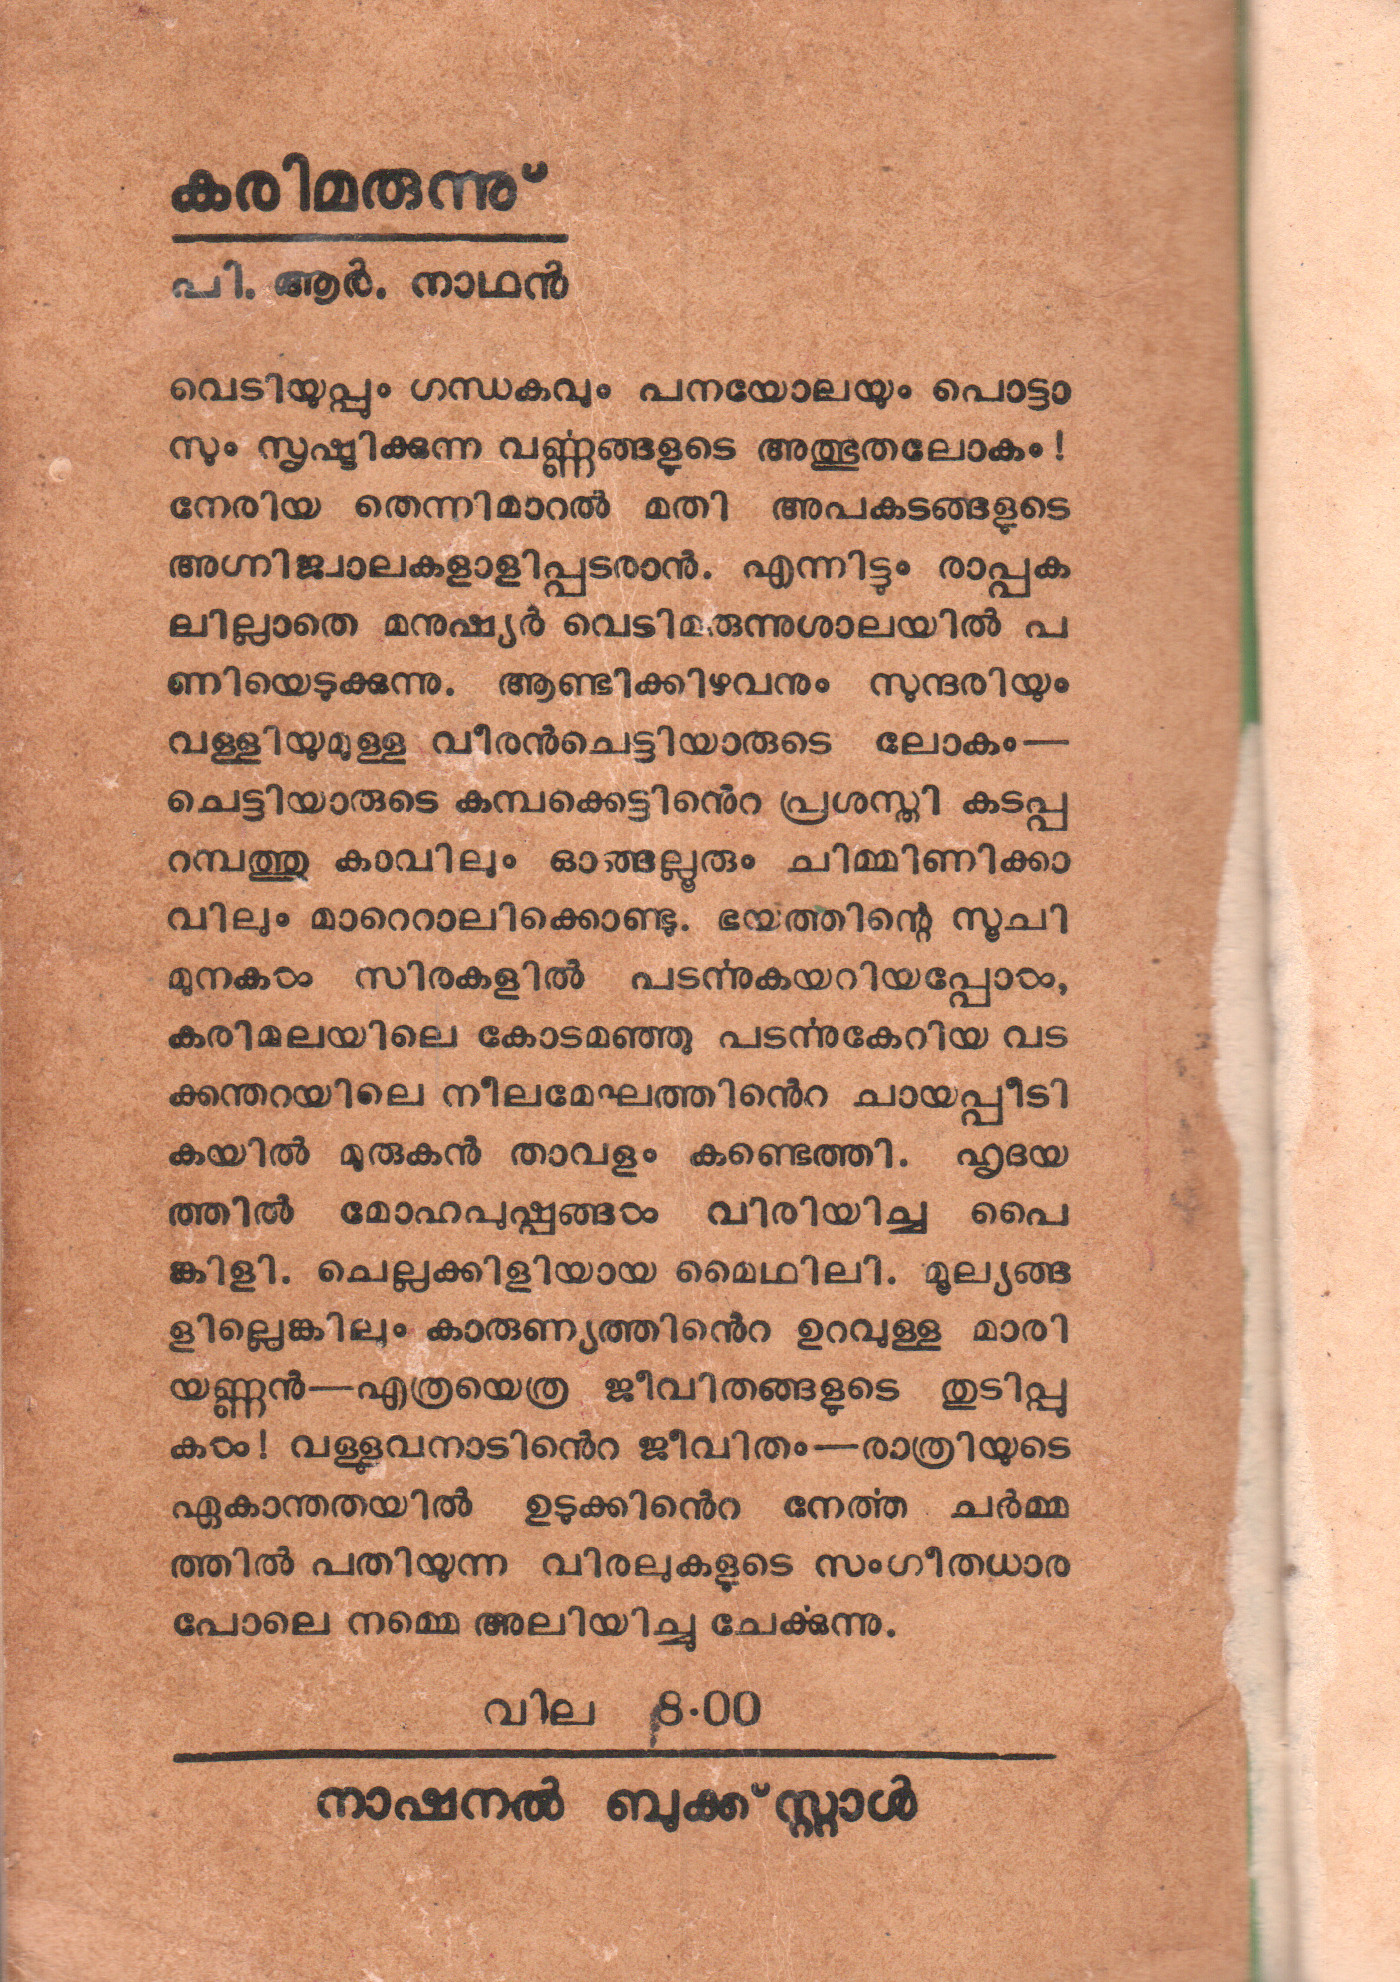 കരിമരുന്നു്
പി. ആർ. നാഥൻ
വെടിയുപ്പും ഗന്ധകവും പനയോലയും പൊട്ടാ
സും സൃഷ്ടിക്കുന്ന വൎണ്ണങ്ങളുടെ അത്ഭുതലോകം!
നേരിയ തെന്നിമാറൽ മതി അപകടങ്ങളുടെ
അഗ്നിജ്വാലകളാളിപ്പടരാൻ. എന്നിട്ടും രാപ്പക
ലില്ലാതെ മനുഷ്യർ വെടിമരുന്നുശാലയിൽ പ
ണിയെടുക്കുന്നു. ആണ്ടിക്കിഴവനും സുന്ദരിയും
വള്ളിയുമുള്ള വീരൻചെട്ടിയാരുടെ ലോകം—
ചെട്ടിയാരുടെ കമ്പക്കെട്ടിൻെറ പ്രശസ്തി കടപ്പ
റമ്പത്തു കാവിലും ഓങ്ങല്ലൂരും ചിമ്മിണിക്കാ
വിലും മാറെറാലിക്കൊണ്ടു. ഭയത്തിന്റെ സൂചി
മുനകൾ സിരകളിൽ പടൎന്നുകയറിയപ്പോൾ,
കരിമലയിലെ കോടമഞ്ഞു പടൎന്നുകേറിയ വട
ക്കന്തറയിലെ നീലമേഘത്തിൻെറ ചായപ്പീടി
കയിൽ മുരുകൻ താവളം കണ്ടെത്തി. ഹൃദയ
ത്തിൽ മോഹപുഷ്പങ്ങൾ വിരിയിച്ച പൈ
ങ്കിളി. ചെല്ലക്കിളിയായ മൈഥിലി. മൂല്യങ്ങ
ളില്ലെങ്കിലും കാരുണ്യത്തിൻെറ ഉറവുള്ള മാരി
യണ്ണൻ—എത്രയെത്ര ജീവിതങ്ങളുടെ തുടിപ്പു
കൾ! വള്ളുവനാടിൻെറ ജീവിതം—രാത്രിയുടെ
ഏകാന്തതയിൽ ഉടുക്കിൻെറ നേൎത്ത ചർമ്മ
ത്തിൽ പതിയുന്ന വിരലുകളുടെ സംഗീതധാര
പോലെ നമ്മെ അലിയിച്ചു ചേൎക്കുന്നു.
വില 8·00
നാഷനൽ ബുക്ക് സ്റ്റാൾ